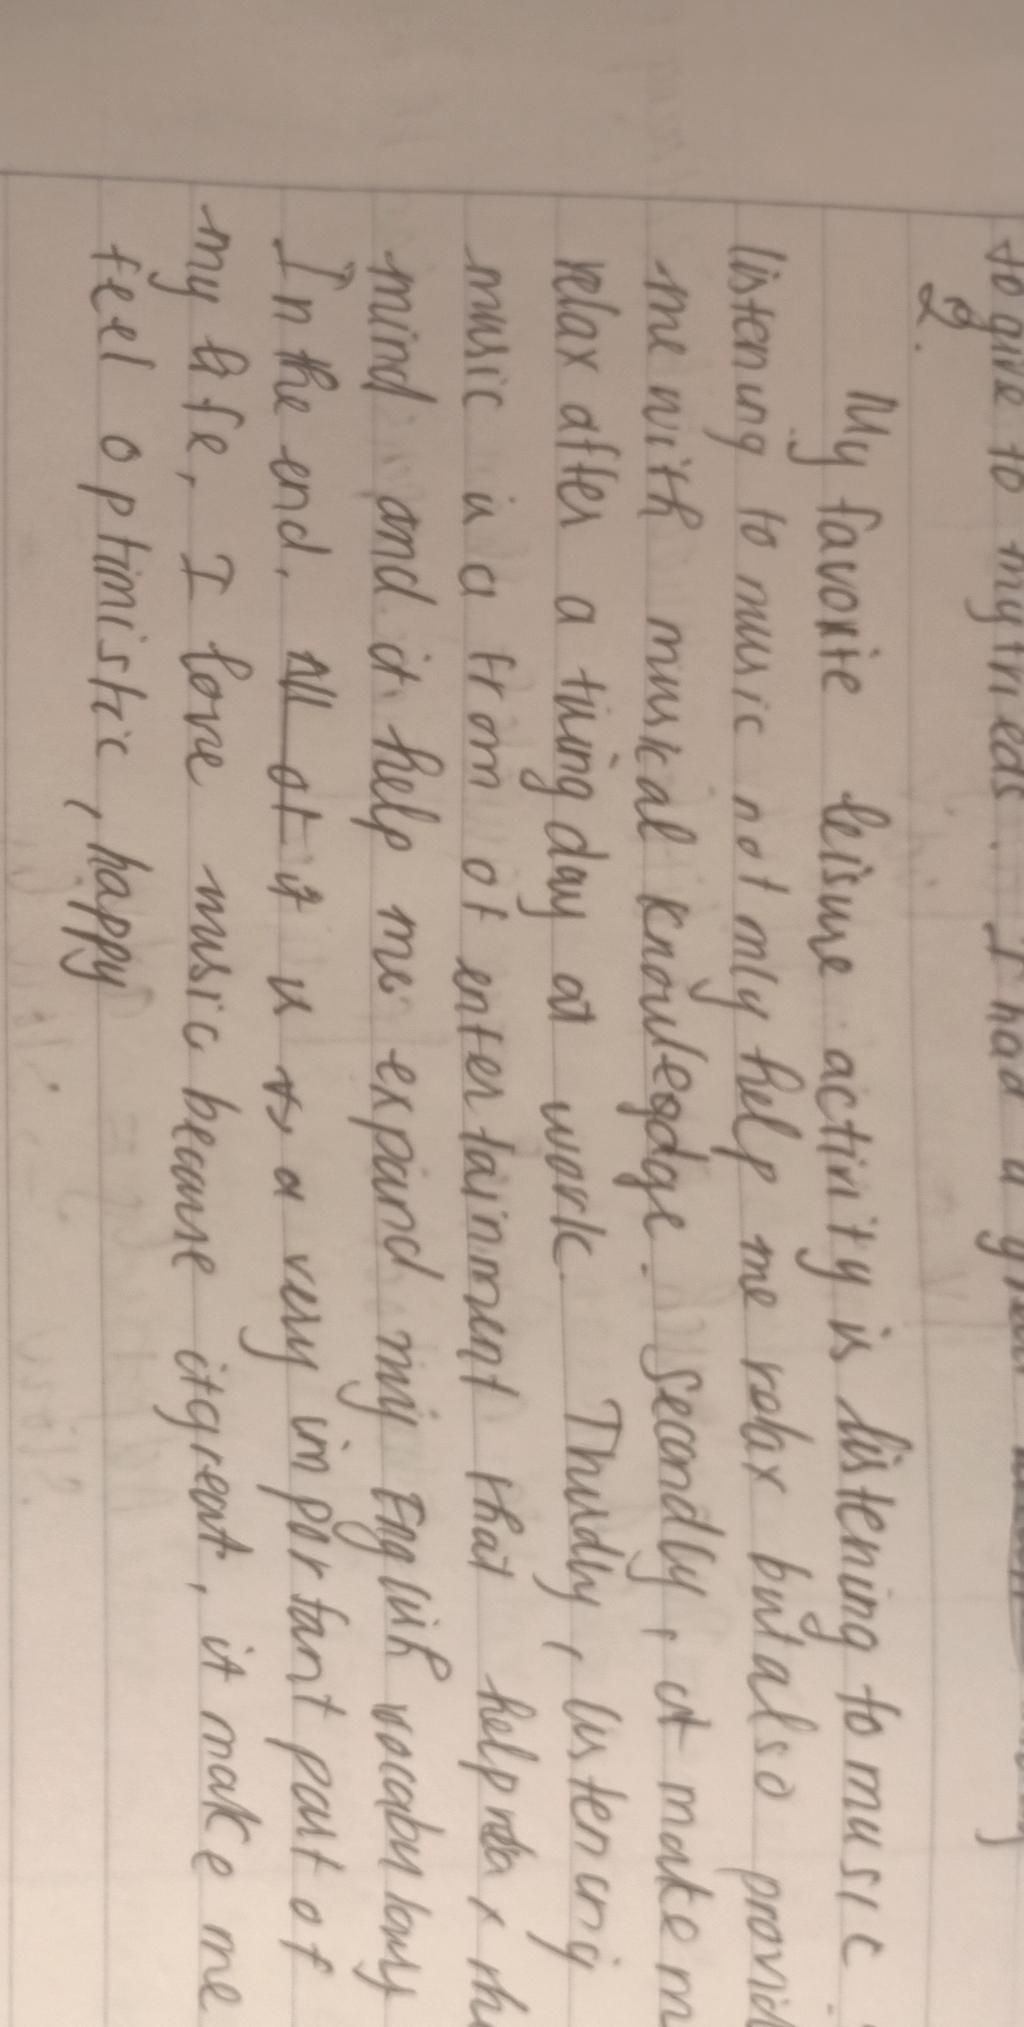 to give to my trieds. I had a great
2.
My favorite leisure activity is listening to music
listening to music not only help me relax but also provid
me with musical knowledge. Secondly, it make m
relax after a tiring day at work. Thirdly, listening
music is a from of entertainment that help relax the
mind and it help me expand my English vocabulary
In the end, it is a very important part of
my life, I love music because it great, it make me
feel optimistic, happy